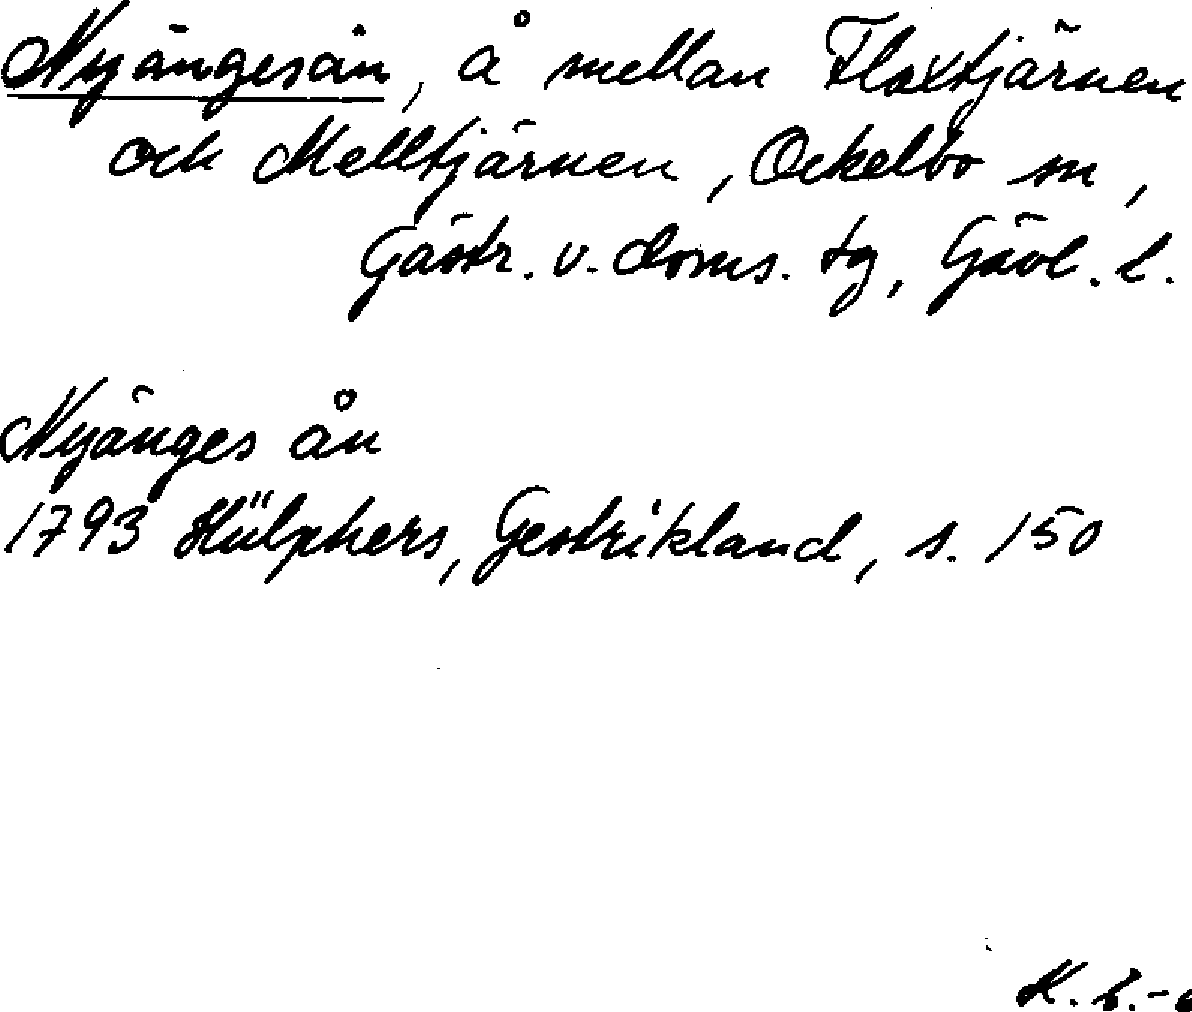 Nyängesån, å mellan Flaxtjärnen
och Melltjärnen, Ockelbo sn,
Gästr. v. doms. tg, Gävl. l.
Nyänges ån
1793 Hülphers, Gestrikland, s. 150